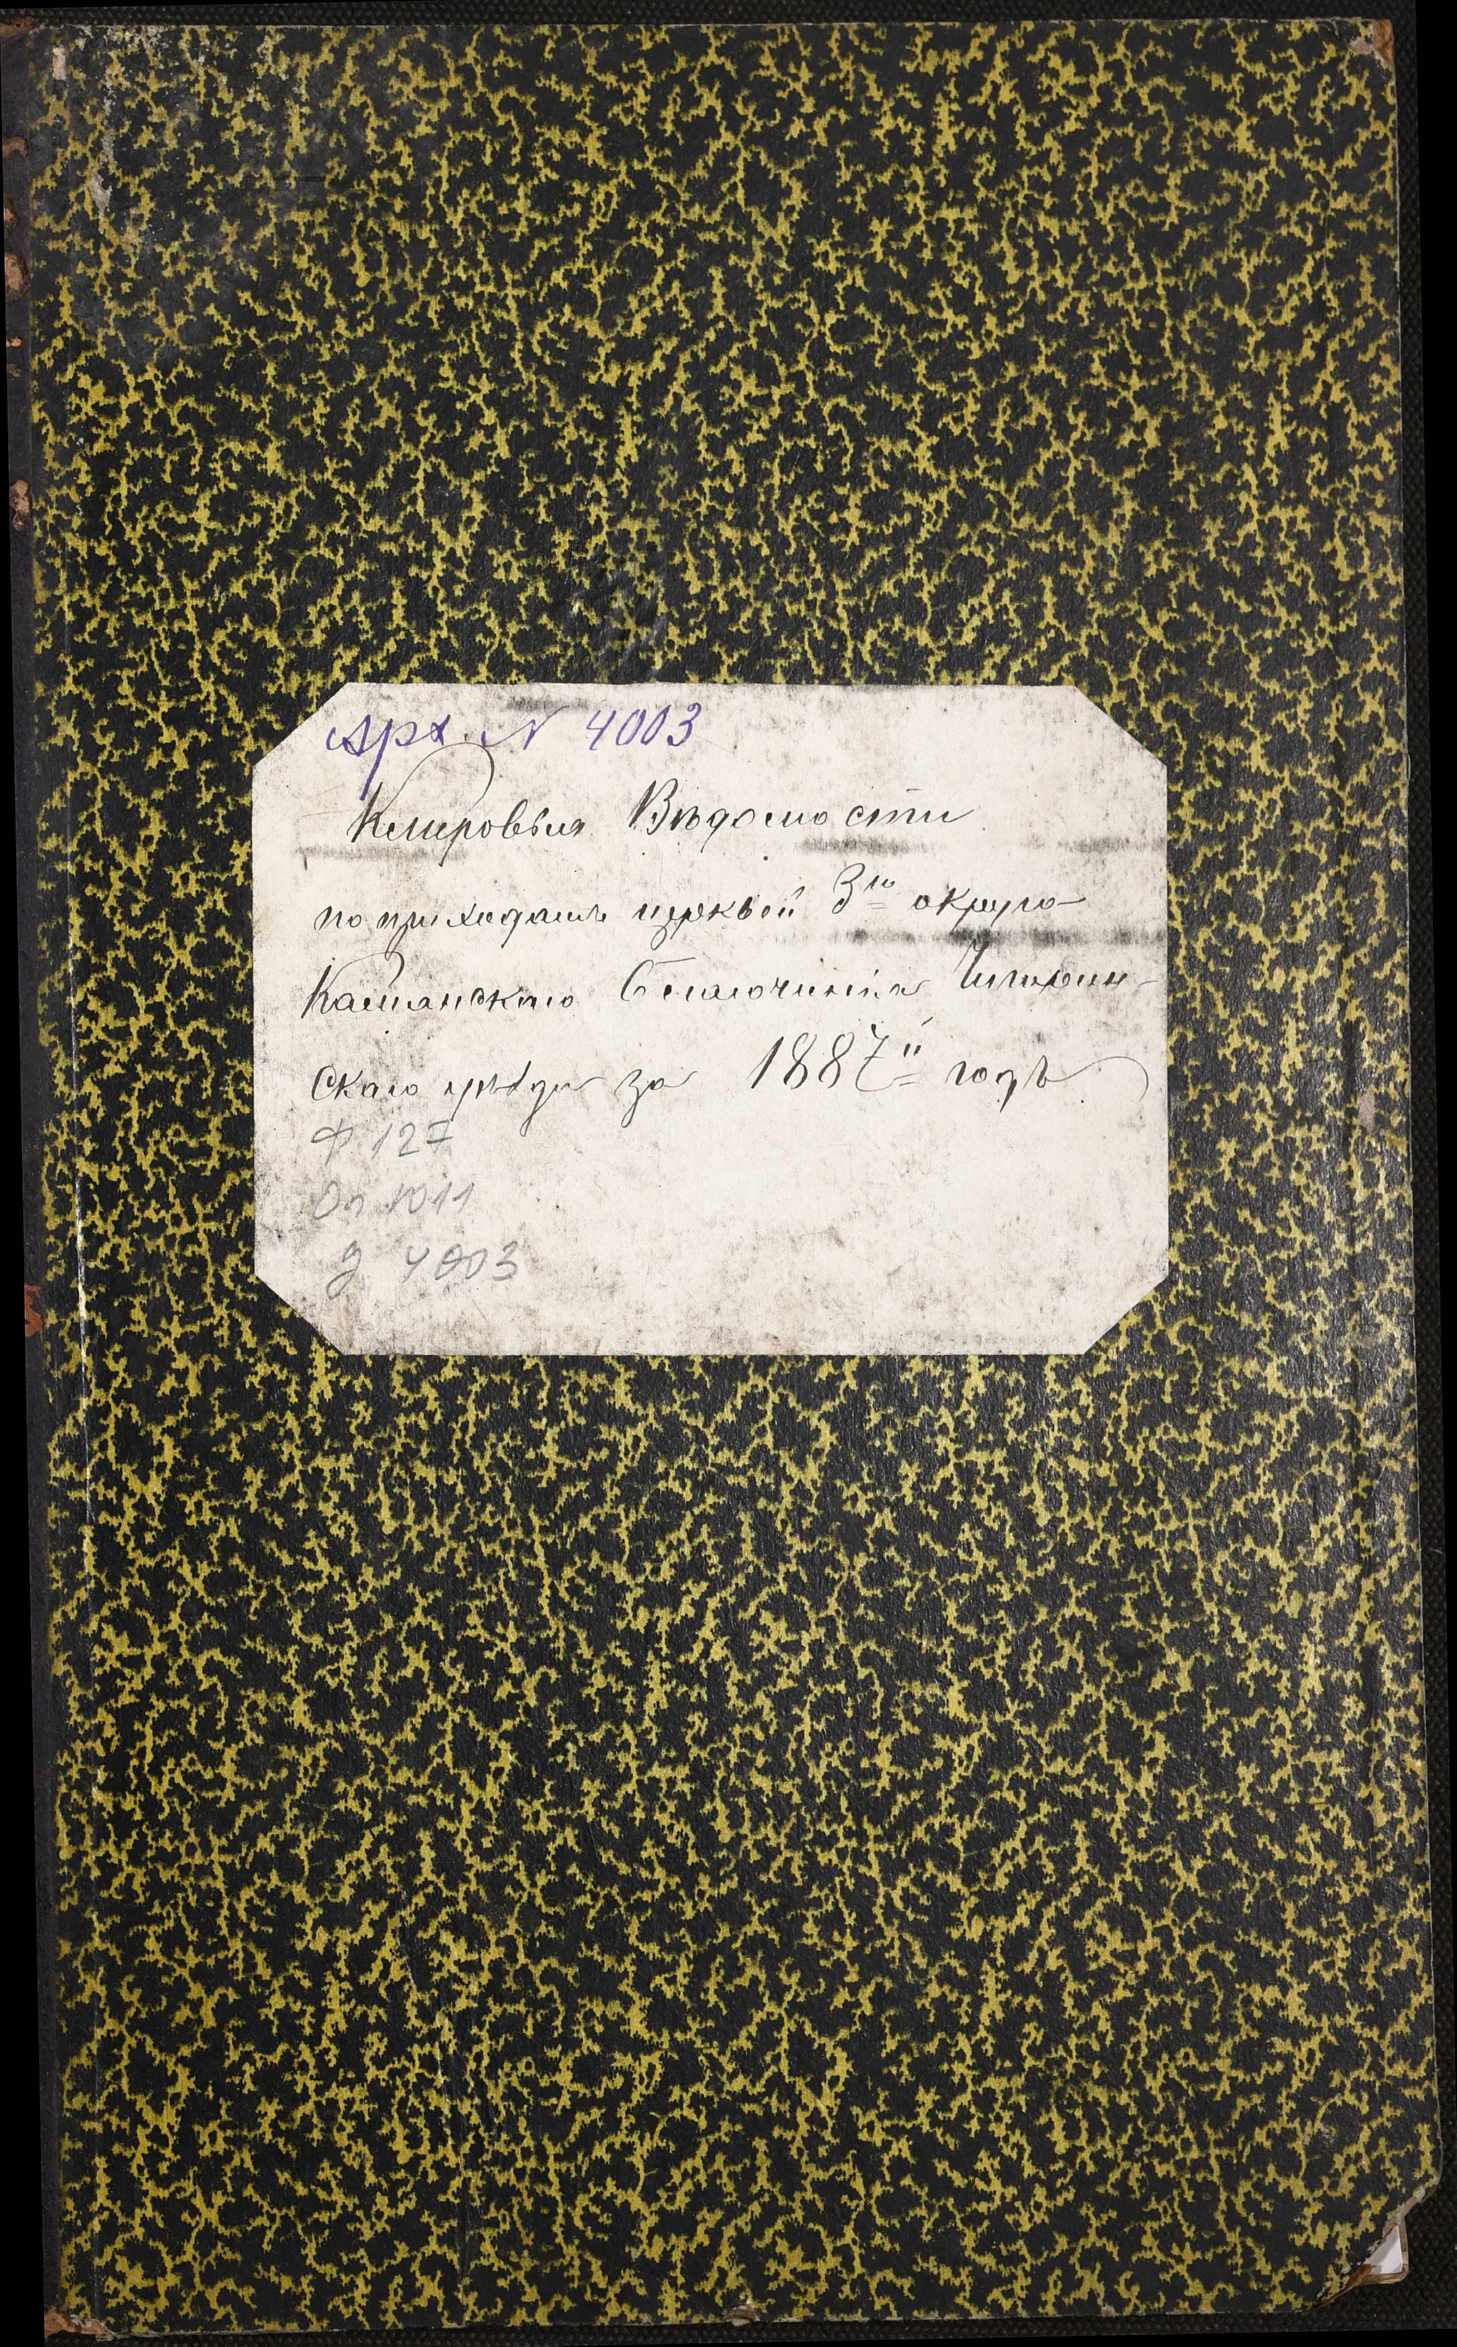 Арх. № 4003
Клировыя Вѣдомости
по приходамъ церквей 3го округа
Каменскаго Благочинія Чигирин-
скаго уѣзда за 1887й годъ
Ф 127
Оп 1011
д 4003